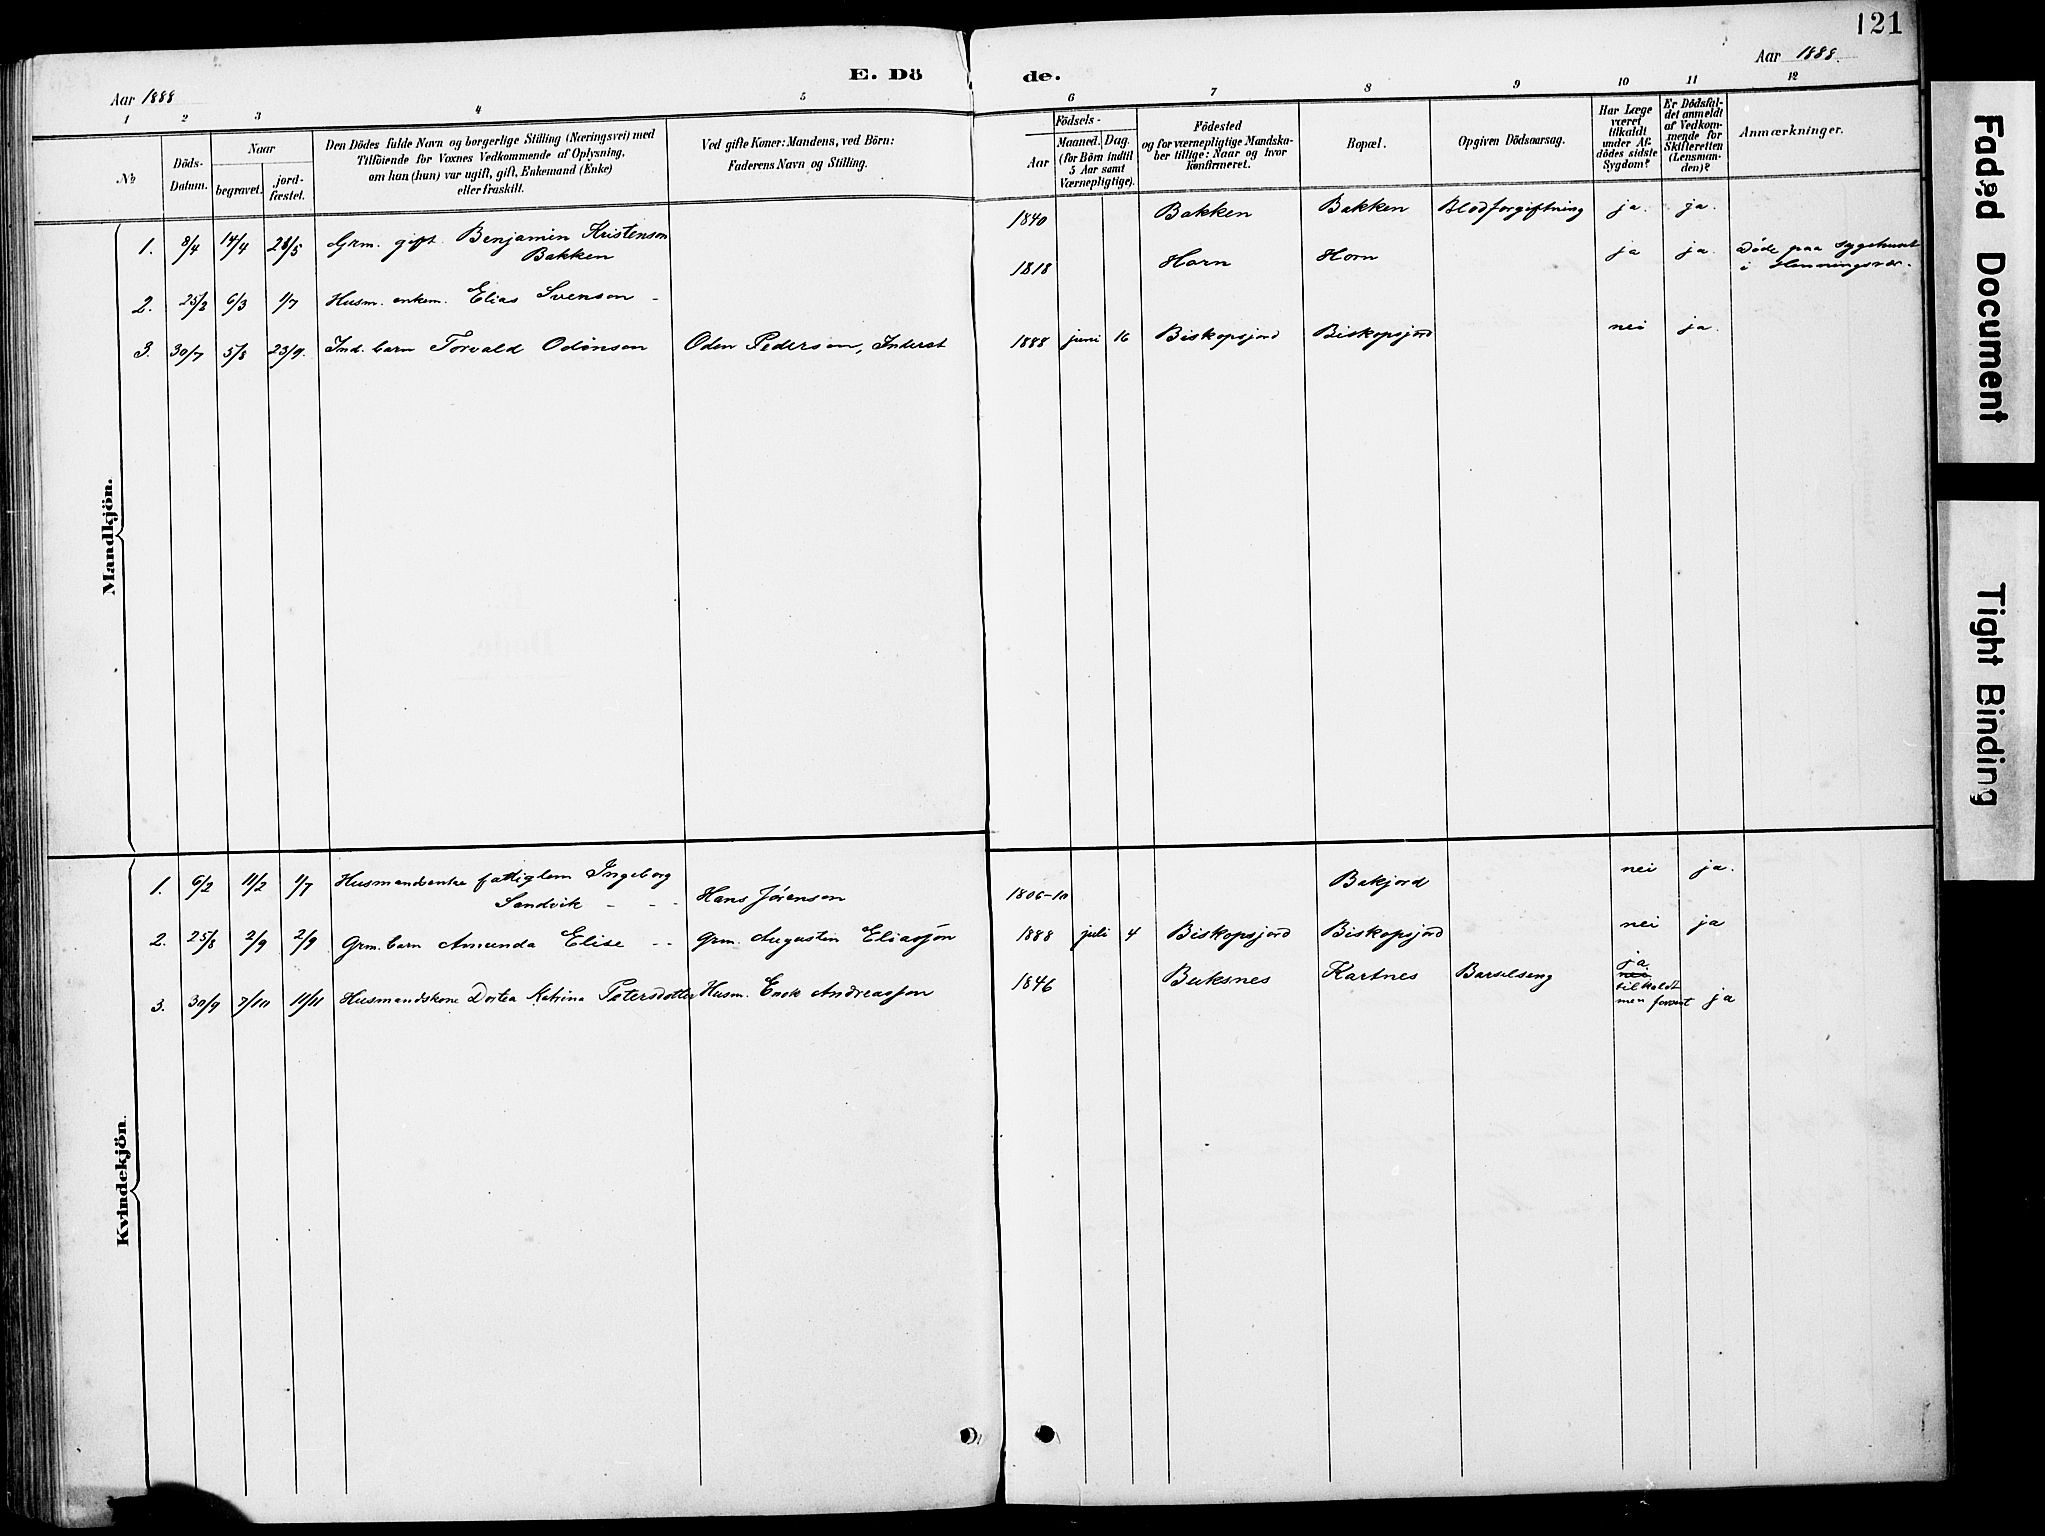 121
E. Dö de.
Aar 1888
Aar 1888.
1 2 3 4 5 6 7 8 9 10 11 12
No
Döds-Datum.
Naar
begravet.
jord-fæstet.
Den Dödes fulde Navn og borgerlige Stilling (Næringsvei) med
Tilföiende for Voxnes Vedkommende af Oplysning,
om han (hun) var ugift, gift, Enkemand (Enke)
eller fraskilt.
Ved gifte Koner: Mandens, ved Börn:
Faderens Navn og Stilling.
Födsels-
Aar
Maaned. Dag.
(for Börn indtil
5 Aar samt
Værnepligtige).
Födested
og for værnepligtige Mandska-
ber tillige: Naar og hvor
konfirmeret.
Bopæl.
Opgiven Dödsaarsag.
Har Læge
været
tilkaldt
under Af-
dödes sidste
Sygdom?
Er Dödsfal-
det anmeldt
af Vedkom-
mende for
Skifteretten
(Lensman-
den)?
Anmærkninger.
Mandkjön.
1. 8/4 14/4 28/5 Grm. gift. Benjamin Kristenson
Bakken
1840 Bakken Bakken Blodforgiftning ja. ja.
2. 25/2 6/3 1/7 Husm. enkem. Elias Svenson -
1818 Horn Horn ja ja. Døde paa Sygehuset
i Henningsvær.
3. 30/7 5/8 23/9. Ind. barn Torvald Odinson Oden Pederson, Inderst 1888 juni 16 Biskopsjord Biskopsjord nei ja.
Kvindekjön.
1. 6/2 11/2 1/7 Husmandsenke fattiglem Ingeborg
Sandvik - - - Hans Jørenson 1806-10 Bakjord nei ja.
2. 25/8 2/9 2/9 Grm. barn Amunda Elise - - Grm. Augustin Eliassøn 1888 juli 4 Biskopsjord Biskopsjord nei ja
3. 30/9 7/10 11/11 Husmandskone Dortea Katrina Petersdotter Husm. Enok Andreassøn 1846 Buksnes Kartnes Barselseng ja
nei
tilkaldt
men forsent ja
Faded Document
Tight Binding